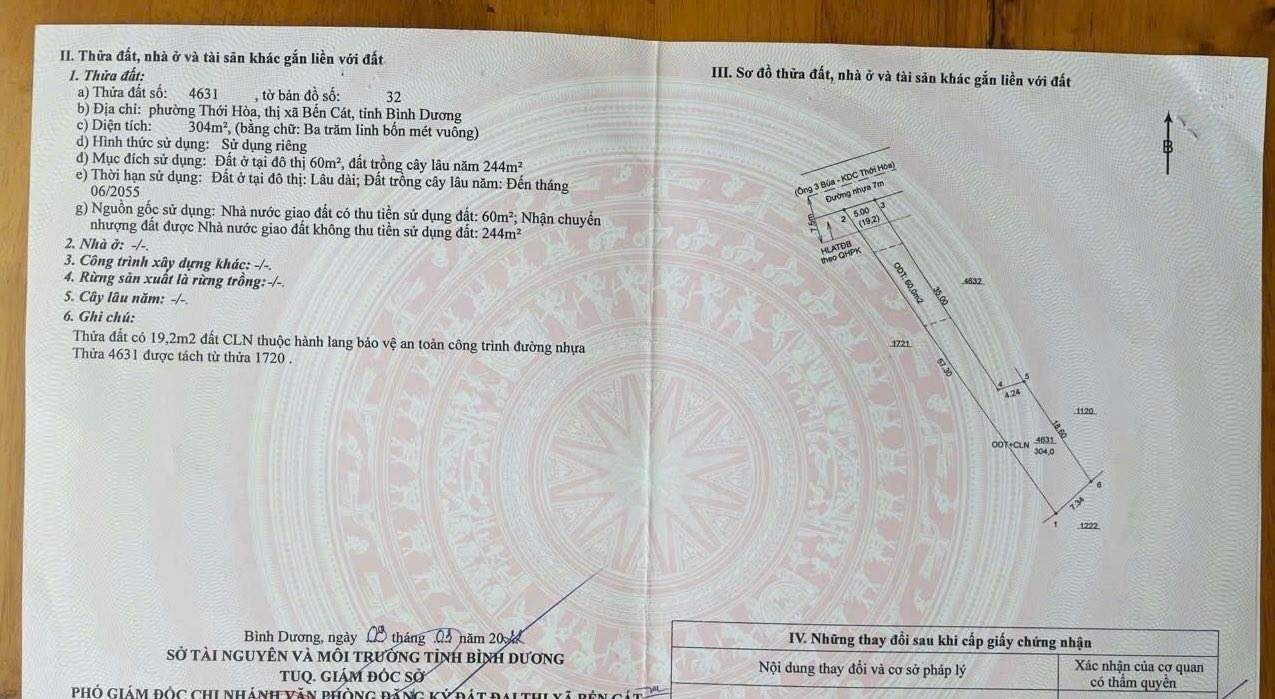 II. Thửa đất, nhà ở và tài sản khác gắn liền với đất
1. Thửa đất:
a) Thửa đất số: 4631 , tờ bản đồ số: 32
b) Địa chỉ: phường Thới Hòa, thị xã Bến Cát, tỉnh Bình Dương
c) Diện tích: 304m², (bằng chữ: Ba trăm linh bốn mét vuông)
d) Hình thức sử dụng: Sử dụng riêng
đ) Mục đích sử dụng: Đất ở tại đô thị 60m², đất trồng cây lâu năm 244m²
e) Thời hạn sử dụng: Đất ở tại đô thị: Lâu dài; Đất trồng cây lâu năm: Đến tháng
06/2055
g) Nguồn gốc sử dụng: Nhà nước giao đất có thu tiền sử dụng đất: 60m²; Nhận chuyển
nhượng đất được Nhà nước giao đất không thu tiền sử dụng đất: 244m²
2. Nhà ở: -/-.
3. Công trình xây dựng khác: -/-.
4. Rừng sản xuất là rừng trồng: -/-.
5. Cây lâu năm: -/-.
6. Ghi chú:
Thửa đất có 19,2m2 đất CLN thuộc hành lang bảo vệ an toàn công trình đường nhựa
Thửa 4631 được tách từ thửa 1720 .
Bình Dương, ngày 09 tháng 03 năm 20
SỞ TÀI NGUYÊN VÀ MÔI TRƯỜNG TỈNH BÌNH DƯƠNG
TUQ. GIÁM ĐỐC SỞ
PHÓ GIÁM ĐỐC CHI NHÁNH VĂN PHÒNG ĐĂNG KÝ ĐẤT ĐAI THỊ XÃ BẾN CÁT
III. Sơ đồ thửa đất, nhà ở và tài sản khác gắn liền với đất
B
(Ông 3 Búa - KDC Thới Hòa)
Đường nhựa 7m
7.5m
2
5.00
3
(19,2)
HLATĐB
theo QHPK
ODT: 60.0m2
35.00
4632
1721
57.30
4
5
4.24
1120
18.60
ODT+CLN
4631
304,0
6
7.34
1
1222
IV. Những thay đổi sau khi cấp giấy chứng nhận
Nội dung thay đổi và cơ sở pháp lý
Xác nhận của cơ quan
có thẩm quyền